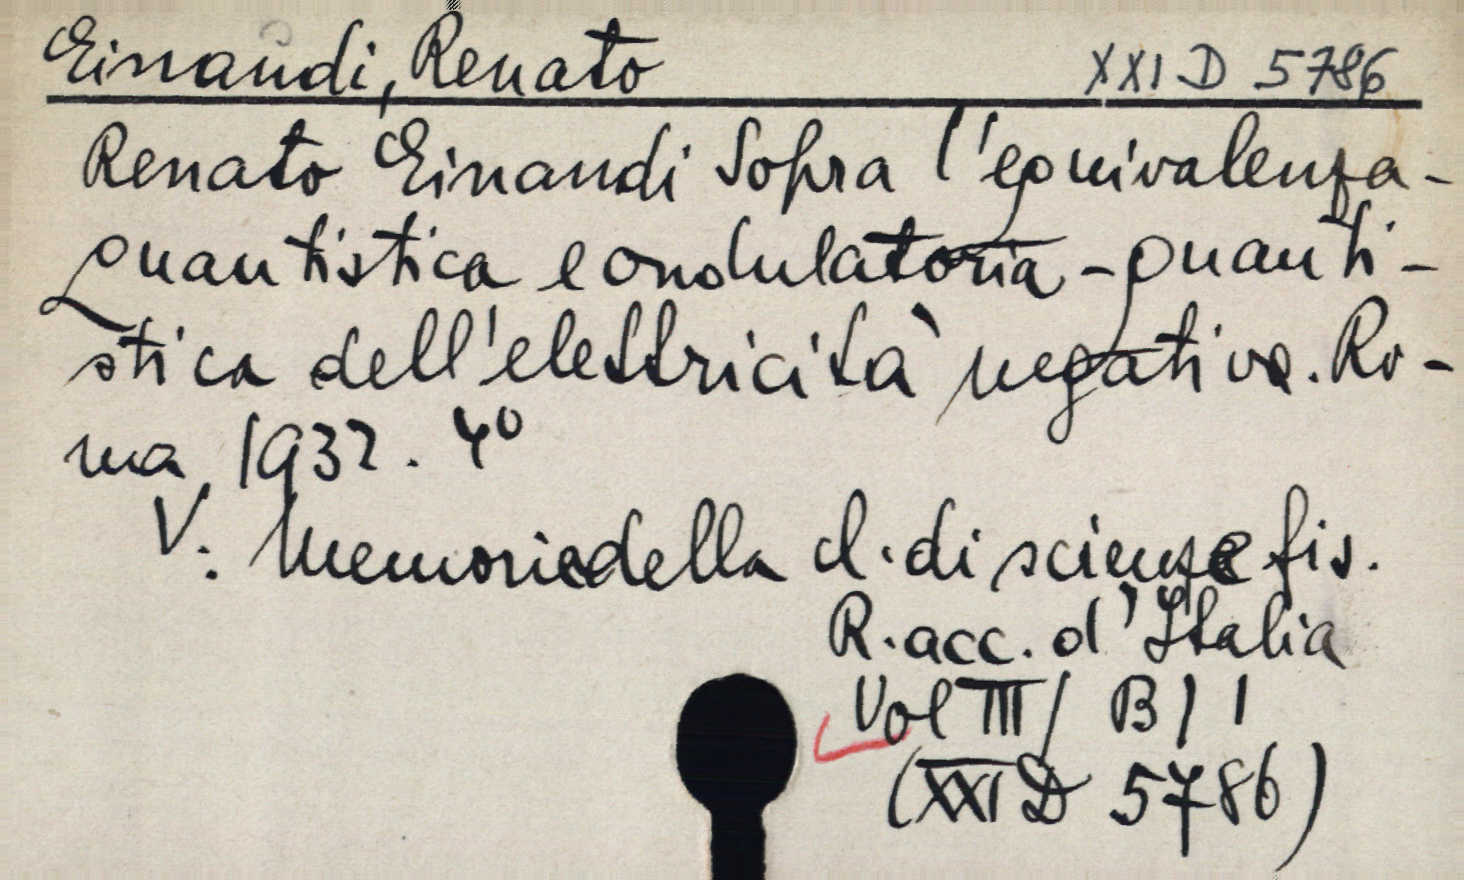 Einaudi, Renato XXI D 5786
Renato Einaudi Sopra l'equivalenza-
quantistica e ondulatoria - quanti-
stica dell'elettricità negativa. Ro-
ma, 1932. 4°
V. Memorie della cl. di scienze fis.
R. acc. d'Italia
Vol III / B / 1
(XXI D 5786)